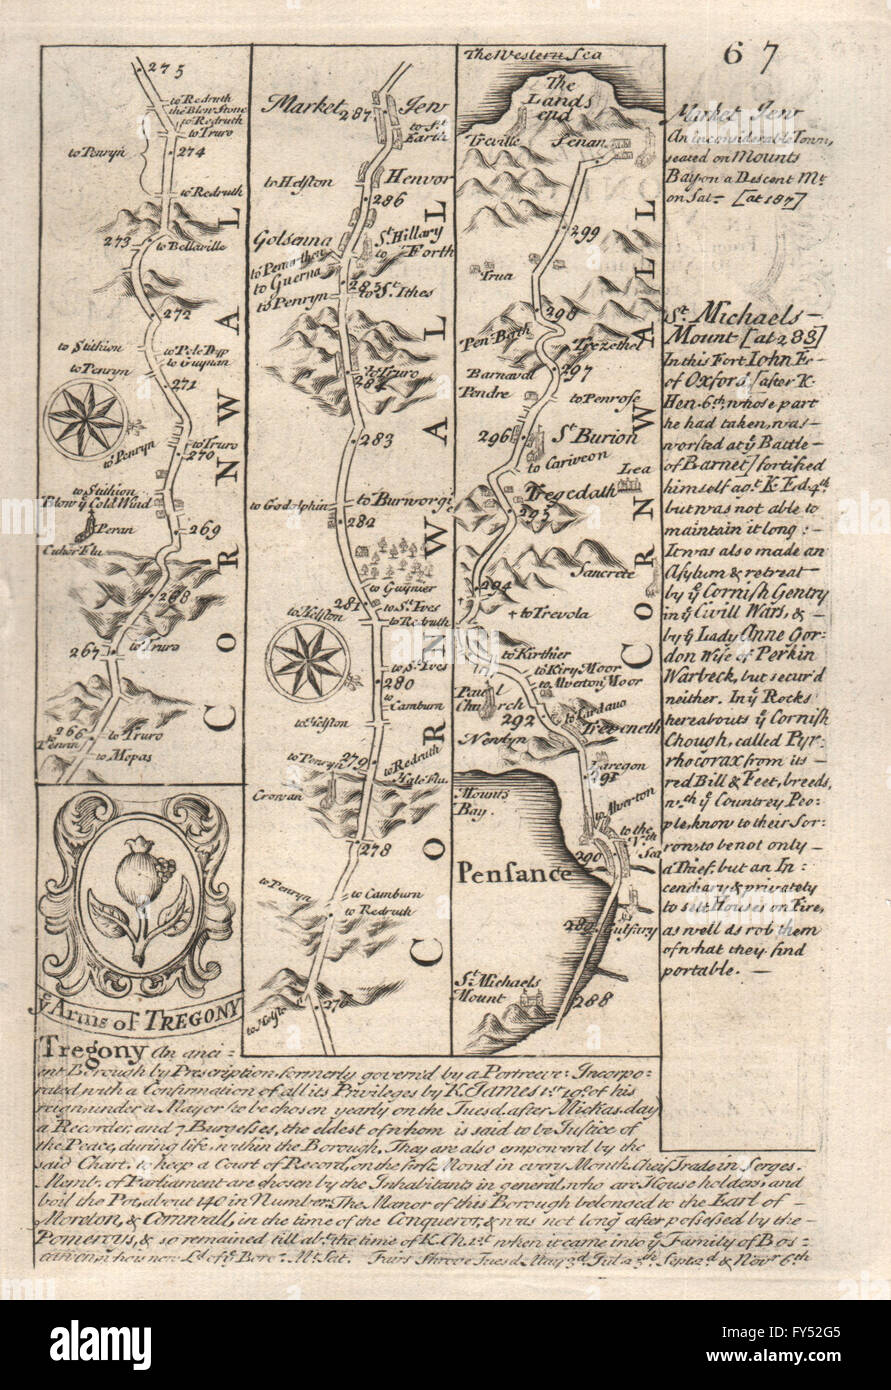 67
275
to Redruth
the Blew Stone
to Redruth
to Truro
to Penryn
274
to Redruth
273
to Bellaville
272
to Stithion
to Penryn
to Pole Dyp
to Guynan
271
to Penryn
to Truro
270
to Stithion
Blow ye Cold Wind
Peran
269
Caher Flu
268
267
to Truro
266
to Penrin
to Truro
to Mopas
CORNWALL
ye Arms of TREGONY
Market Jew
287
to St.
Earth
to Helston
Henvor
286
Golsenna
St. Hillary
to Penarthen
to Guerna
to Forth
285
to Penryn
to St. Ithes
to Truro
284
283
to Godolphin
to Burworgie
282
to Gwynier
281
to St. Ives
to Helston
to Redruth
to St. Ives
280
to Camburn
to Helston
to Penryn
279
to Redruth
Hale flu.
Crowan
278
to Penryn
to Camburn
to Redruth
to Helston
276
CORNWALL
The Western Sea
The
Lands
end
Treville
Senan
299
Trua
298
Pen Both
Trezethel
Barnaval
297
Pendre
to Penrose
296
St. Burion
to Cariveon
Lea
Tregedath
295
Sancrete
294
to Trevola
to Kirthier
to Kiry Moor
to Alverton Moor
Paul
Church
to Lardavo
292
Treveneth
Newlyn
Laregon
291
Mounts
Bay.
to Alverton
to the
Nth
Sea
290
Pensance
289
Gulfary
St. Michaels
Mount
288
CORNWALL
Market Jew
An Inconsiderable Town,
seated on Mounts
Bay on a Descent Mt.
on Sat. [at 187]
St. Michaels
Mount [at 288]
In this Fort John E.
of Oxford, [after K.
Hen. 6th, whose part
he had taken, was
worsted at ye Battle
of Barnet] fortified
himself agst. K. Ed. 4th.
but was not able to
maintain it long:
It was also made an
Asylum & retreat
by ye Cornish Gentry
in ye Civill Wars, &
by ye Lady Anne Gor-
don Wife of Perkin
Warbeck, but secur'd
neither. In ye Rocks
hereabouts ye Cornish
Chough, called Pyr-
rhocorax from its
red Bill & Feet, breeds,
wch ye Countrey Peo-
ple, know to their Sor-
row, to be not only
a Thief, but an In-
cendiary & privately
to sett Houses on Fire,
as well as rob them
of what they find
portable.
Tregony An anci-
ent Borough by Prescription, formerly govern'd by a Portreeve: Incorpo-
rated with a Confirmation of all its Privileges by K. James 1st. 19o. of his
reign, under a Mayor to be chosen yearly on the Tuesd. after Michas. day
a Recorder, and 7 Burgesses, the eldest of whom is said to be Justice of
the Peace, during life, within the Borough, They are also empower'd by the
said Chart. to keep a Court of Record, on the first Mond in every Month, their Trade in Serges.
Memb. of Parliament are chosen by the Inhabitants in general, who are House holders, and
boil the Pot, about 140 in Number. The Manor of this Borough belonged to the Earl of
Moreton, & Cornwall, in the time of the Conqueror, & was not long after possessed by the
Pomeroys, & so remained till abt. the time of K. Ch. 1st. when it came into ye Family of Bos-
cawen, who is now Ld. of ye Boro: Mt. Sat. Fairs Shrove Tuesd. May 3d. Jul. 25th. Septr. 2d. & Novr. 6th
alamy
Image ID: FY52G5
www.alamy.com